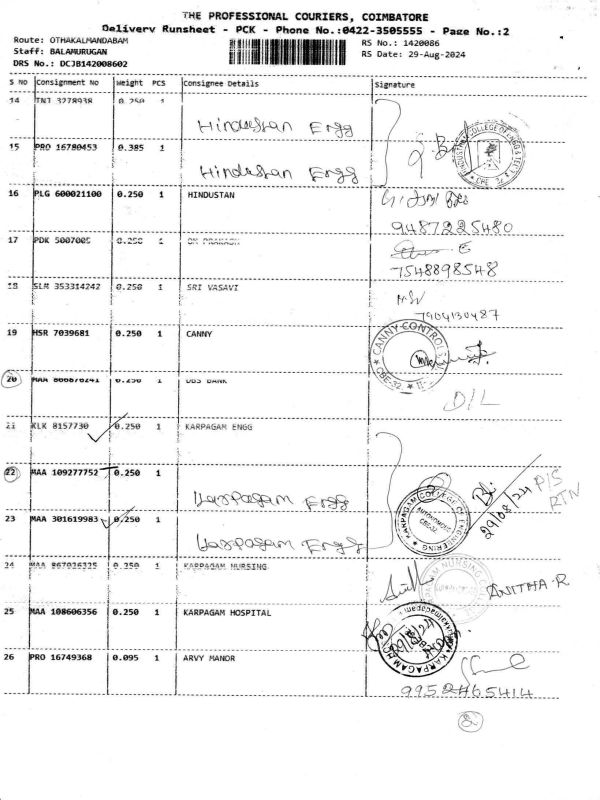 THE PROFESSIONAL COURIERS, COIMBATORE
Delivery Runsheet - PCK - Phone No.:0422-3505555 - Page No.:2
Route: OTHAKALMANDABAM
Staff: BALAMURUGAN
DRS No.: DCJB142008602
RS No.: 1420086
RS Date: 29-Aug-2024
S NO Consignment No Weight PCS Consignee Details Signature
14 TNJ 3278938 0.250 1
Hindustan Engg
15 PRO 16780453 0.385 1
Hindustan Engg
16 PLG 600021100 0.250 1 HINDUSTAN
9487225480
17 PDK 5007005 0.250 1
7548898548
18 SLM 353314242 0.250 1 SRI VASAVI
7904130487
19 HSR 7039681 0.250 1 CANNY
CANNY CONTROLS
CBE-32
20 MAA 866876241 0.250 1 DBS BANK
D/L
21 KLK 8157730 0.250 1 KARPAGAM ENGG
22 MAA 109277752 0.250 1
Karpagam Engg
29/08/24
P/S
RTN
23 MAA 301619983 0.250 1
Karpagam Engg
KARPAGAM COLLEGE OF ENGINEERING
AUTONOMOUS
CBE-32
24 MAA 867026325 0.250 1 KARPAGAM NURSING
ANITHA.R
25 MAA 108606356 0.250 1 KARPAGAM HOSPITAL
26 PRO 16749368 0.095 1 ARVY MANOR
9952465414